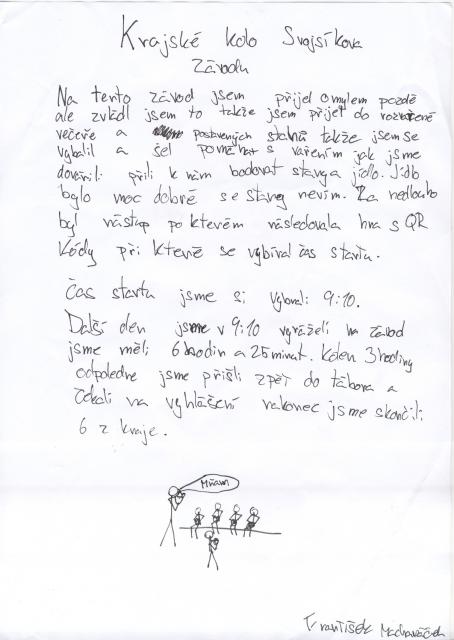 Krajské kolo Svojsíkova
Závodu
Na tento závod jsem přijel omylem pozdě
ale zvládl jsem to takže jsem přijel do rozvařené
večeře a postavených stanů takže jsem se
vybalil a šel pomáhat s vařením jak jsme
dovářili přili k nám bodovat stavy a jídlo. Jídlo
bylo moc dobré se stavy nevím. Za nedlouho
byl nástup po kterém následovala hra s QR
kódy při které se vybíral čas startu.
Čas startu jsme si vybrali 9:10.
Další den jsme v 9:10 vyráželi na závod
jsme měli 6 hodin a 25 minut. Kolem 3 hodiny
odpoledne jsme přišli zpět do tábora a
čekali na vyhlášení nakonec jsme skončili
6 z kraje.
Mňam
František